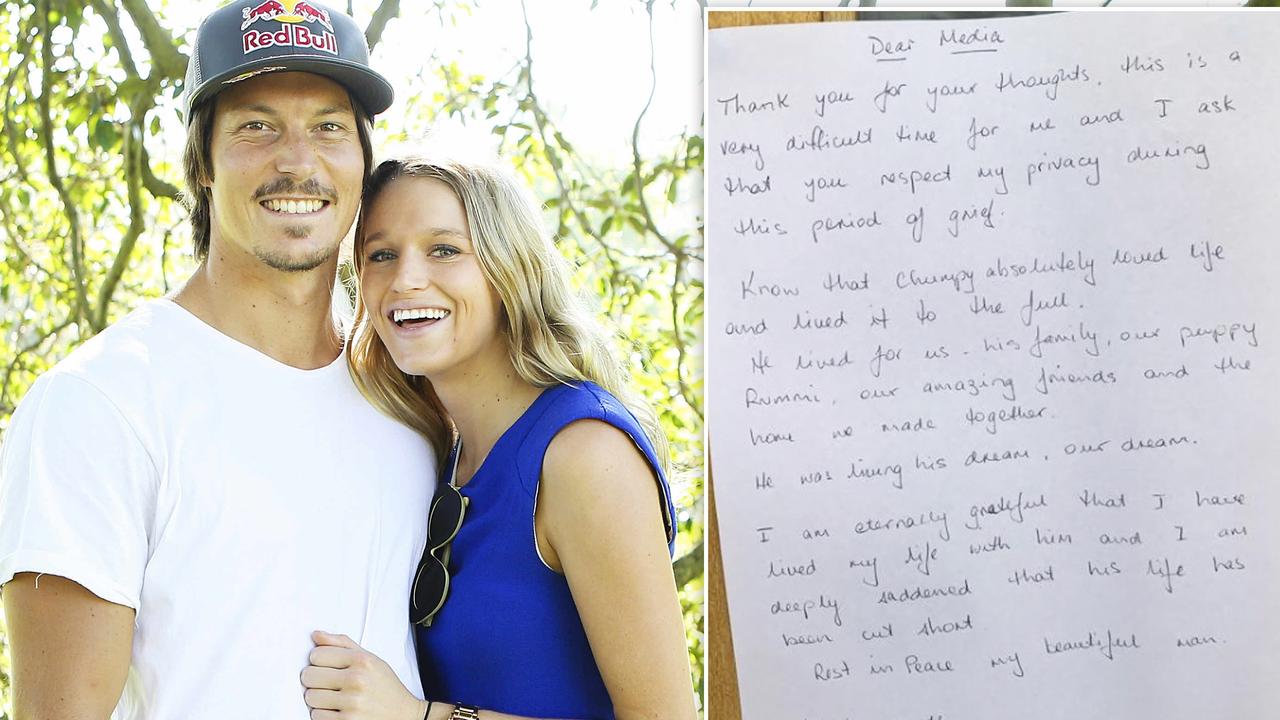 Red Bull
Dear Media
Thank you for your thoughts, this is a
very difficult time for me and I ask
that you respect my privacy during
this period of grief.
Know that Chumpy absolutely loved life
and lived it to the full.
He lived for us - his family, our puppy
Rummi, our amazing friends and the
home we made together.
He was living his dream, our dream.
I am eternally grateful that I have
lived my life with him and I am
deeply saddened that his life has
been cut short
Rest in Peace my beautiful man.